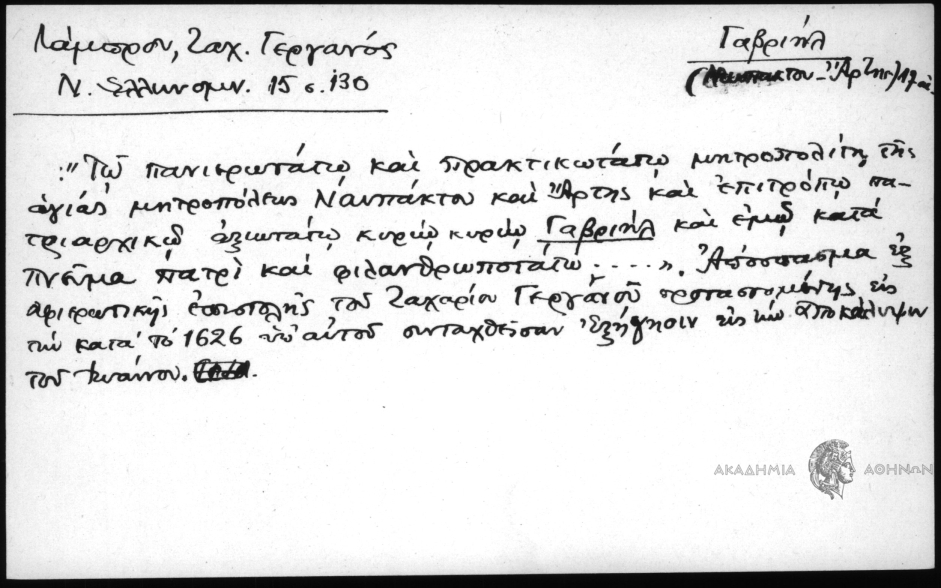 Λάμπρου, Ζαχ. Γεργανός
Ν. Ἑλληνομν. 15 σ. 130
Γαβριήλ
(Ναυπάκτου - Ἄρτης) 17 αἰ.
:"Τῷ πανιερωτάτῳ καὶ πρακτικωτάτῳ μητροπολίτῃ τῆς
ἁγίας μητροπόλεως Ναυπάκτου καὶ Ἄρτης καὶ ἐπιτρόπῳ πα-
τριαρχικῷ ἀξιωτάτῳ κυρίῳ κυρίῳ Γαβριήλ καὶ ἐμῷ κατά
πνεῦμα πατρὶ καὶ φιλανθρωποτάτῳ ....». Ἀπόσπασμα ἐξ
ἀφιερωτικῆς ἐπιστολῆς τοῦ Ζαχαρίου Γεργάνοῦ προτασσομένης εἰς
τὴν κατά τὸ 1626 ὑπ' αὐτοῦ συνταχθεῖσαν Ἐξήγησιν εἰς τὴν Ἀποκάλυψιν
τοῦ Ἰωάννου.
ΑΚΑΔΗΜΙΑ ΑΘΗΝΩΝ